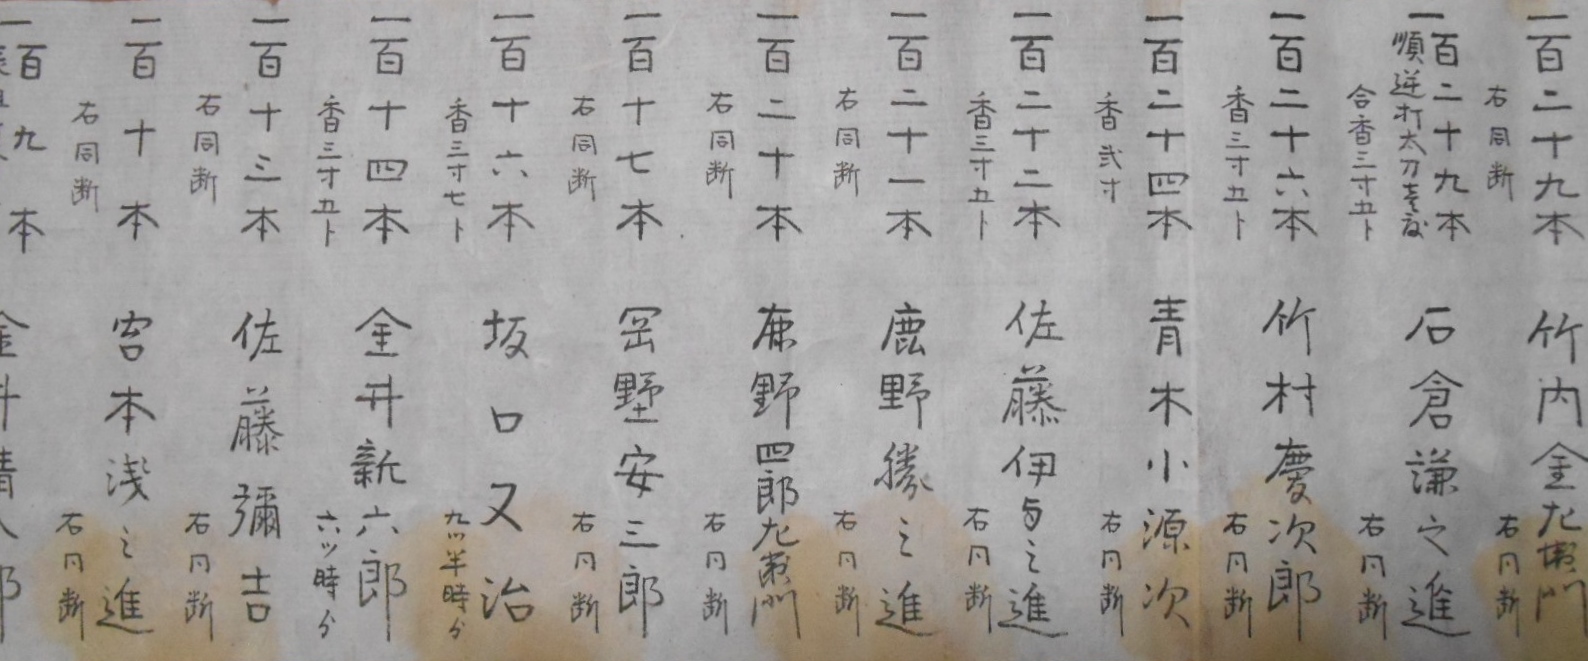 一百二十九本 竹内金左衛門
右同断 右同断
一百二十九本 石倉謙之進
順逆打太刀壱度
合香三寸五卜 右同断
一百二十六本 竹村慶次郎
香三寸五卜 右同断
一百二十四本 青木小源次
香弐寸 右同断
一百二十二本 佐藤伊与之進
香三寸五卜 右同断
一百二十一本 鹿野勝之進
右同断 右同断
一百二十本 鹿野四郎左衛門
右同断 右同断
一百十七本 岡野安三郎
右同断 右同断
一百十六本 坂口又治
香三寸七卜 九ツ半時分
一百十四本 金井新六郎
香三寸五卜 六ツ時分
一百十三本 佐藤彌吉
右同断 右同断
一百十本 宮本浅之進
右同断 右同断
一百九本 金井清八郎